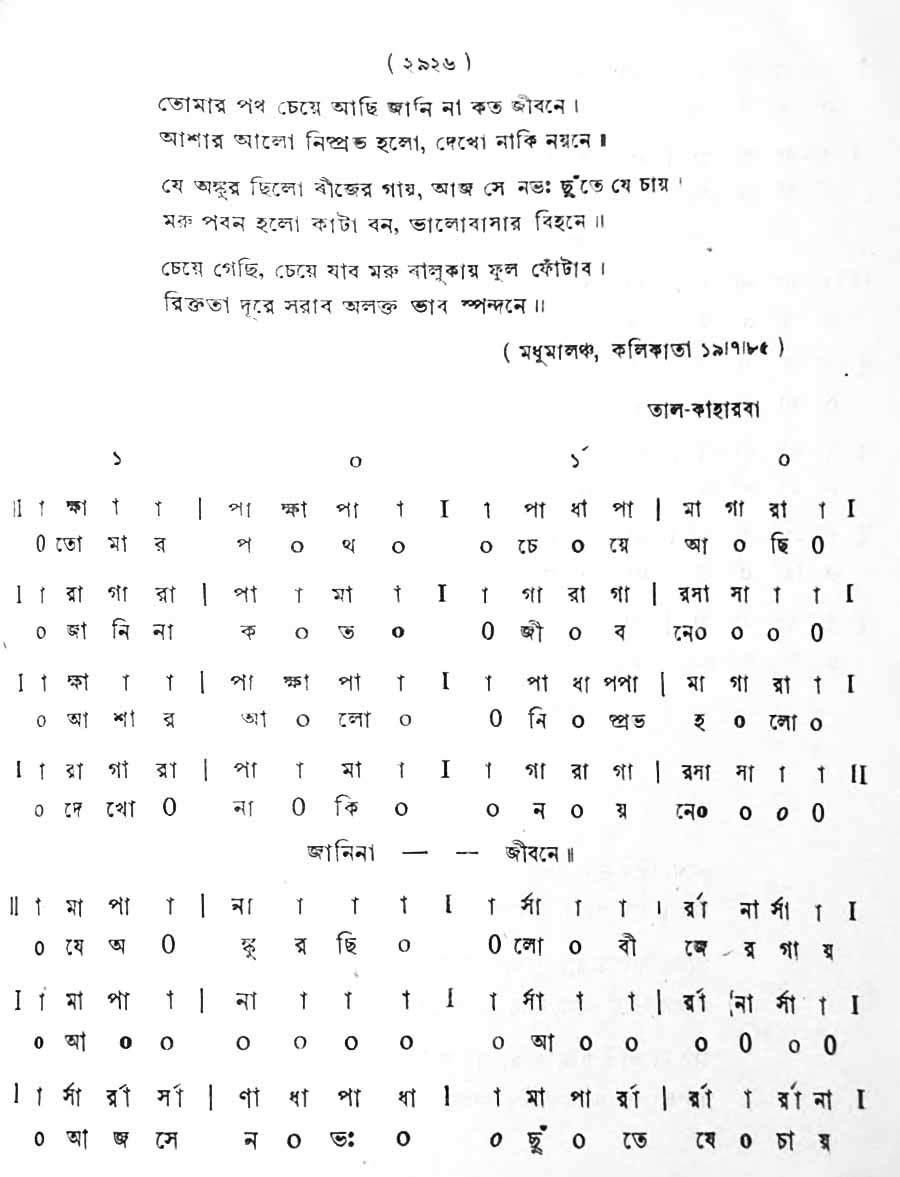 ( ২৯২৬ )
তোমার পথ চেয়ে আছি জানি না কত জীবনে ।
আশার আলো নিষ্প্রভ হলো, দেখো নাকি নয়নে ॥
যে অঙ্কুর ছিলো বীজের গায়, আজ সে নভঃ ছুঁতে যে চায় ।
মরু পবন হলো কাটা বন, ভালোবাসার বিহনে ॥
চেয়ে গেছি, চেয়ে যাব মরু বালুকায় ফুল ফোঁটাব ।
রিক্ততা দূরে সরাব অলক্ত ভাব স্পন্দনে ॥
( মধুমালঞ্চ, কলিকাতা ১৯।৭।৮৫ )
তাল-কাহারবা
১ ০ ১´ ০
II া ক্ষা া া | পা ক্ষা পা া I া পা ধা পা | মা গা রা া I
০ তো মা র প ০ থ ০ ০ চে ০ য়ে আ ০ ছি ০
I া রা গা রা | পা া মা া I া গা রা গা | রসা সা া া I
০ জা নি না ক ০ ত ০ ০ জী ০ ব নে০ ০ ০ ০
I া ক্ষা া া | পা ক্ষা পা া I া পা ধা পপা | মা গা রা া I
০ আ শা র আ ০ লো ০ ০ নি ০ ষ্প্রভ হ ০ লো ০
I া রা গা রা | পা া মা া I া গা রা গা | রসা সা া া II
০ দে খো ০ না ০ কি ০ ০ ন ০ য় নে০ ০ ০ ০
জানিনা — -- জীবনে ॥
II া মা পা া | না া া া I া র্সা া া । র্রা না র্সা া I
০ যে অ ০ ঙ্কু র ছি ০ ০ লো ০ বী জে র গা য়
I া মা পা া | না া া া I া র্সা া া | র্রা না র্সা া I
০ আ ০ ০ ০ ০ ০ ০ ০ আ ০ ০ ০ ০ ০ ০
I া র্সা র্রা র্সা | ণা ধা পা ধা I া মা পা র্রা | র্রা া র্রা না I
০ আ জ সে ন ০ ভঃ ০ ০ ছুঁ ০ তে যে ০ চা য়